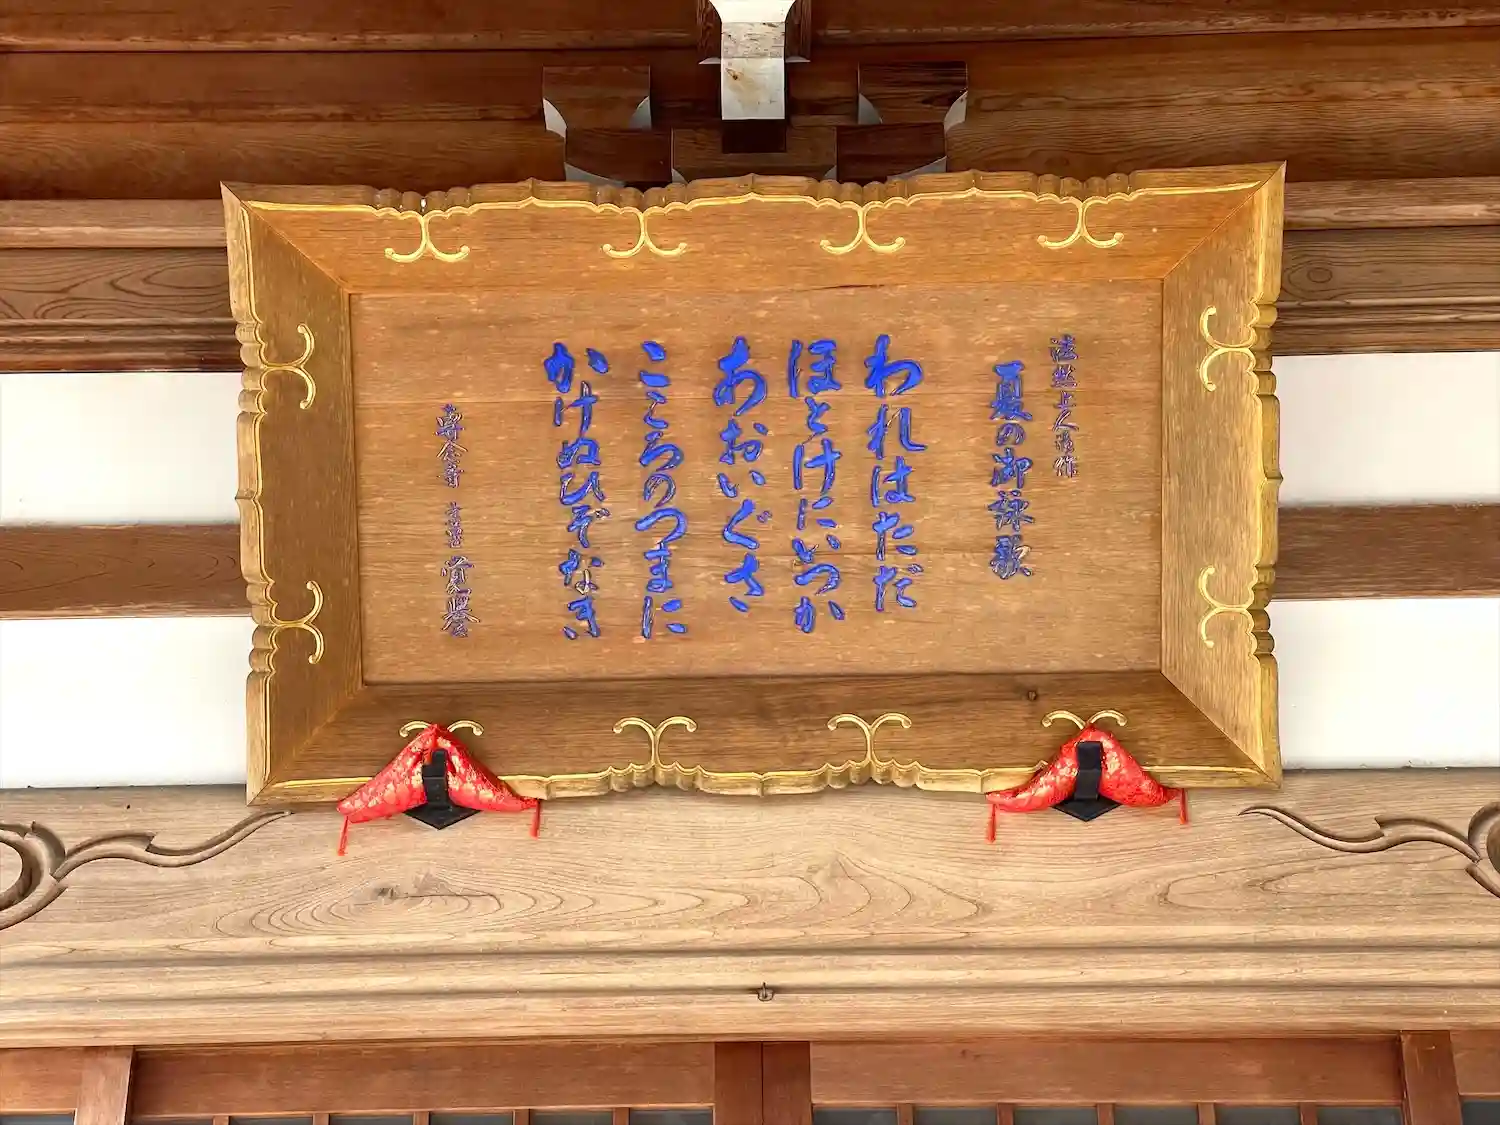 法然上人御作
夏の御詠歌
われはただ
ほとけにいつか
あおいぐさ
こころのつまに
かけぬひぞなき
専念寺 十世 覚誉